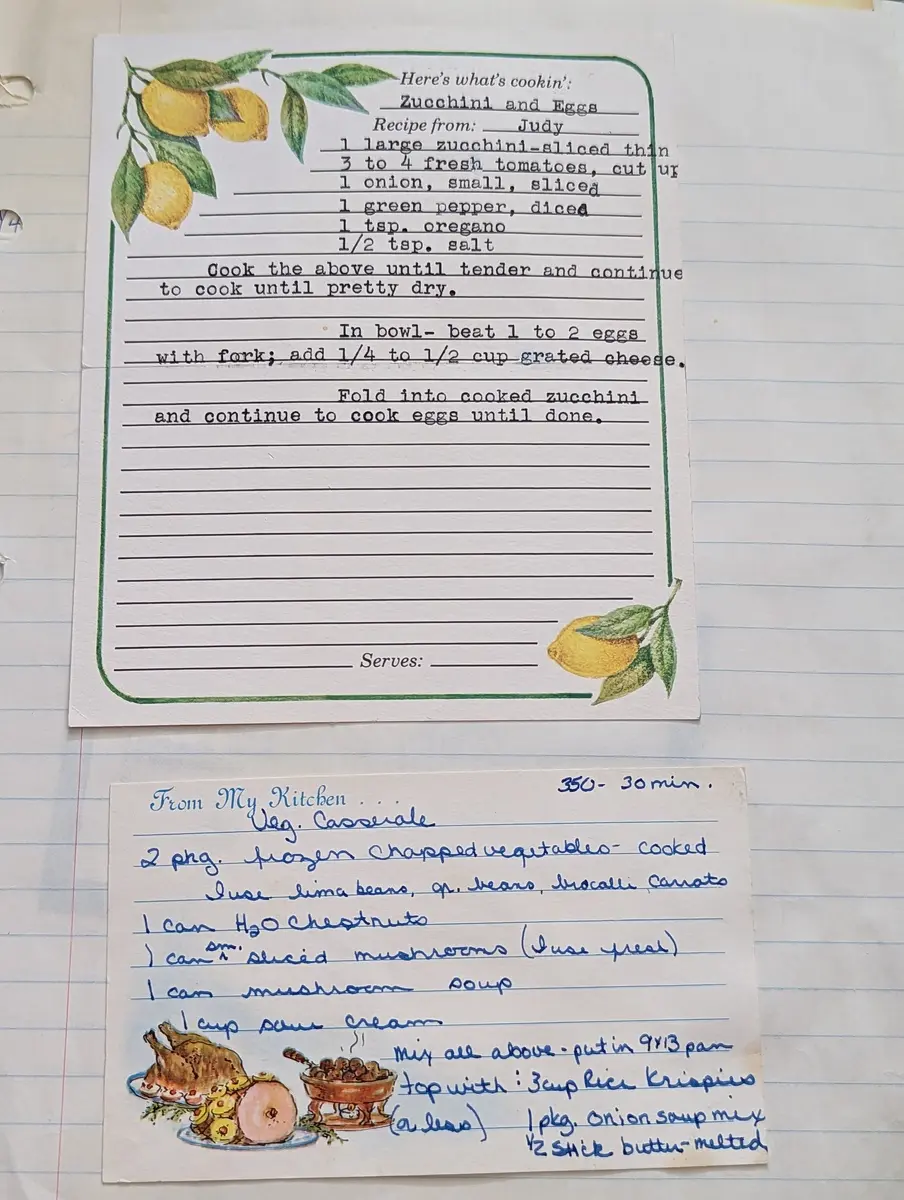 Here's what's cookin':
Zucchini and Eggs
Recipe from: Judy
1 large zucchini-sliced thin
3 to 4 fresh tomatoes, cut up
1 onion, small, sliced
1 green pepper, diced
1 tsp. oregano
1/2 tsp. salt
Cook the above until tender and continue
to cook until pretty dry.
In bowl- beat 1 to 2 eggs
with fork; add 1/4 to 1/2 cup grated cheese.
Fold into cooked zucchini
and continue to cook eggs until done.
Serves:
350- 30 min.
From My Kitchen . . .
Veg. Casserale
2 pkg. frozen chapped vegetables- cooked
I use lima beans, gr. beans, brocalli carrots
1 can H2O Chestnuts
1 can sm. sliced mushrooms (I use fresh)
1 can mushroom soup
1 cup sour cream
mix all above - put in 9x13 pan
top with : 3 cup Rice Krispies
(or less) 1 pkg. onion soup mix
1/2 stick butter-melted